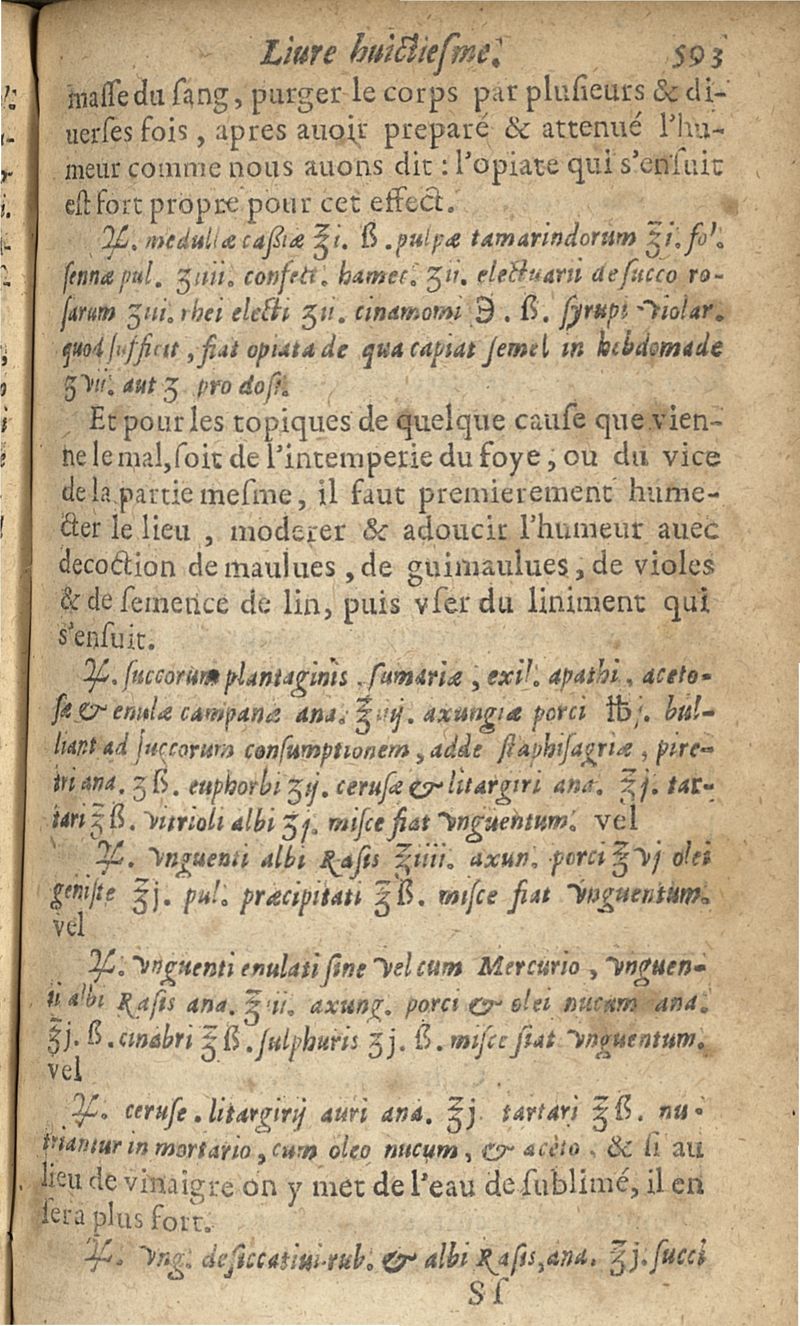 Liure huictiesme. 593
masse du sang, purger le corps par plusieurs & di-
uerses fois, apres auoir preparé & attenué l'hu-
meur comme nous auons dit : l'opiate qui s'ensuit
est fort propre pour cet effect.
♃. medullæ cassiæ ℥i. ß. pulpæ tamarindorum ℥i. fol.
sennæ pul. ʒiiii. confect. hamec. ʒii. electuarii de succo ro-
sarum ʒiii. rhei electi ʒii. cinamomi ℈. ß. syrupi violar.
quod sufficit, fiat opiata de qua capiat semel in hebdomade
ʒvii. aut ʒ pro dosi.
Et pour les topiques de quelque cause que vien-
ne le mal, soit de l'intemperie du foye, ou du vice
de la partie mesme, il faut premierement hume-
cter le lieu, moderer & adoucir l'humeur auec
decoction de maulues, de guimaulues, de violes
& de semence de lin, puis vser du liniment qui
s'ensuit.
♃. succorum plantaginis, fumariæ, exil. apathi, aceto-
sæ & enulæ campanæ ana. ℥iij. axungiæ porci ℔j. bul-
liant ad succorum consumptionem, adde staphisagriæ, pire-
tri ana. ʒß. euphorbi ʒij. cerusæ & litargiri ana. ℥j. tar-
tari ℥ß. vitrioli albi ʒj. misce fiat vnguentum. vel
♃. vnguenti albi Rasis ℥iiii. axun. porci ℥vj olei
geniste ℥j. pul. præcipitati ℥ß. misce fiat vnguentum.
vel
♃. vnguenti enulati sine vel cum Mercurio, vnguen-
ti albi Rasis ana. ℥iii. axung. porci & olei nucum ana.
℥j. ß. cinabri ℥ß. sulphuris ʒj. ß. misce fiat vnguentum.
vel
♃. ceruse. litargirij auri ana. ℥j. tartari ℥ß. nu-
triantur in mortario, cum oleo nucum, & aceto, & si au
lieu de vinaigre on y met de l'eau de sublimé, il en
sera plus fort.
♃. vng. desiccatiui rub. & albi Rasis, ana. ℥j. succi
Sſ